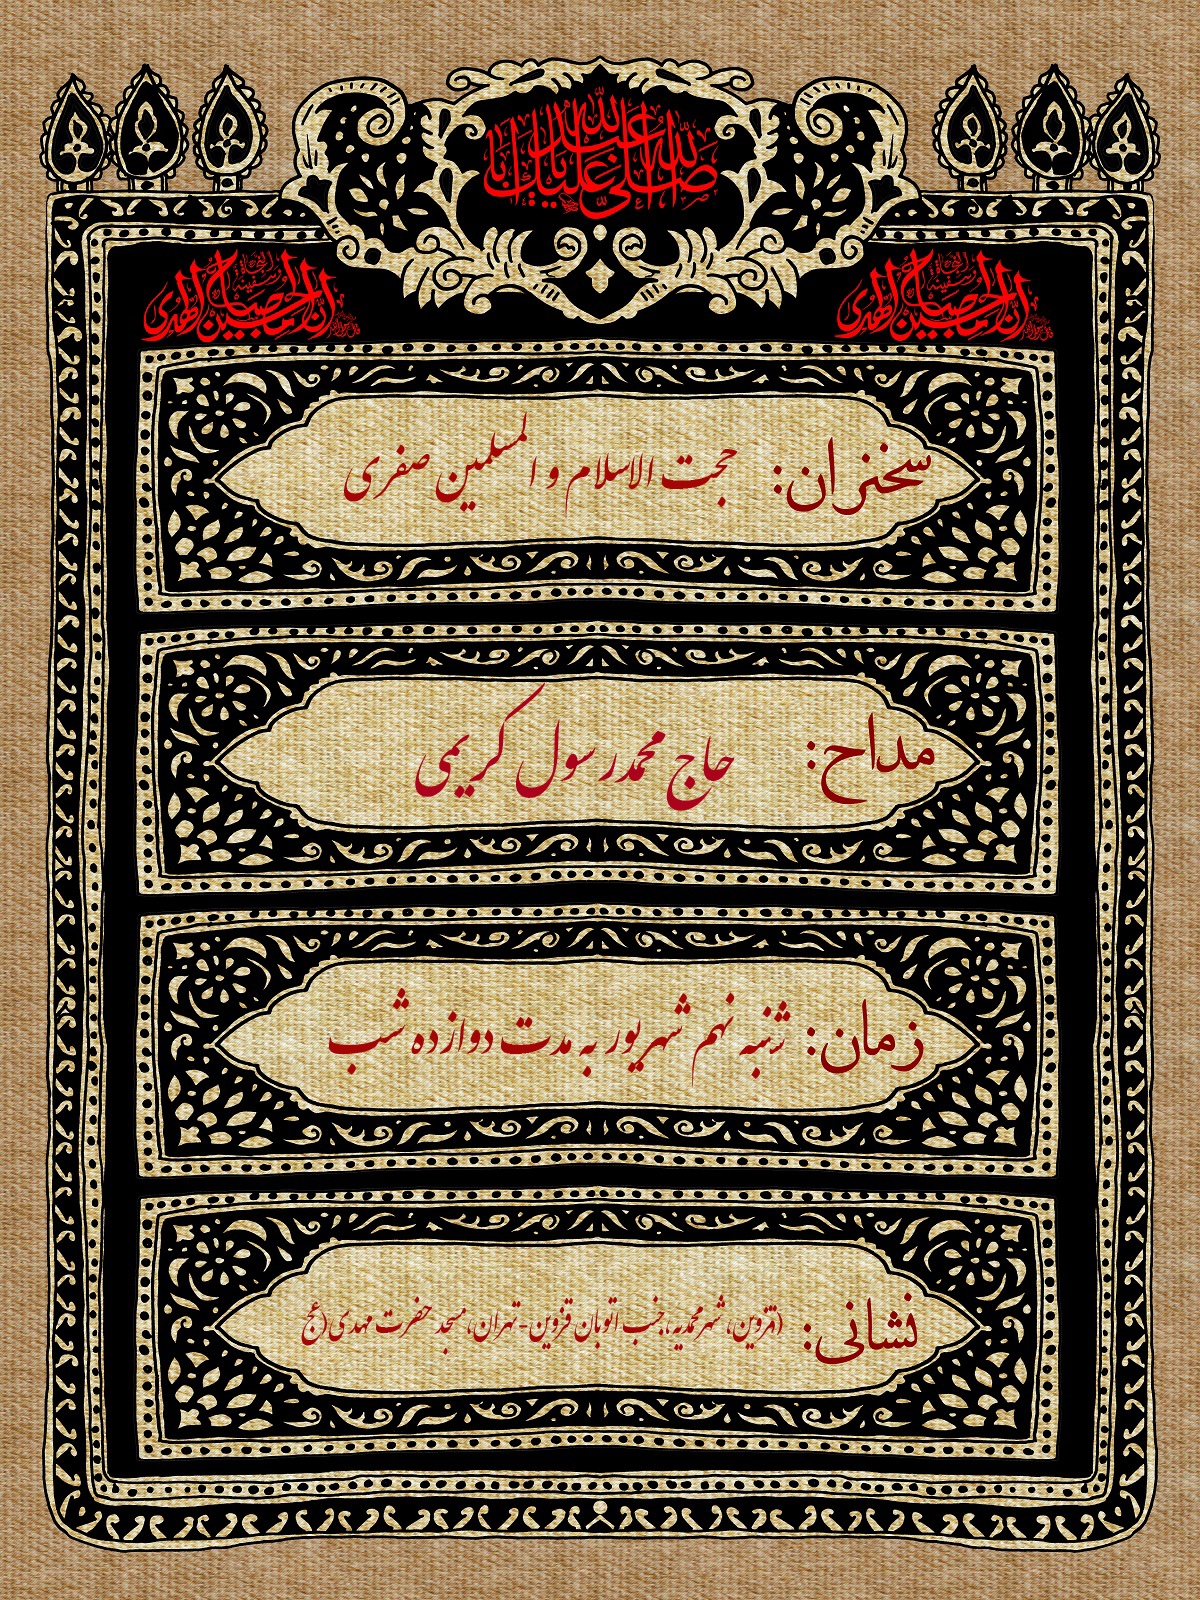 صلی الله علیک یا اباعبدالله
ان الحسین مصباح الهدی و سفینة النجاة
ان الحسین مصباح الهدی و سفینة النجاة
سخنران: حجت الاسلام و المسلمین صفری
مداح: حاج محمدرسول کریمی
زمان: ژنبه نهم شهریور به مدت دوازده شب
نشانی: (قزوین، شهرمحمدیه، جنب اتوبان قزوین-تهران، مسجد حضرت مهدی(عج